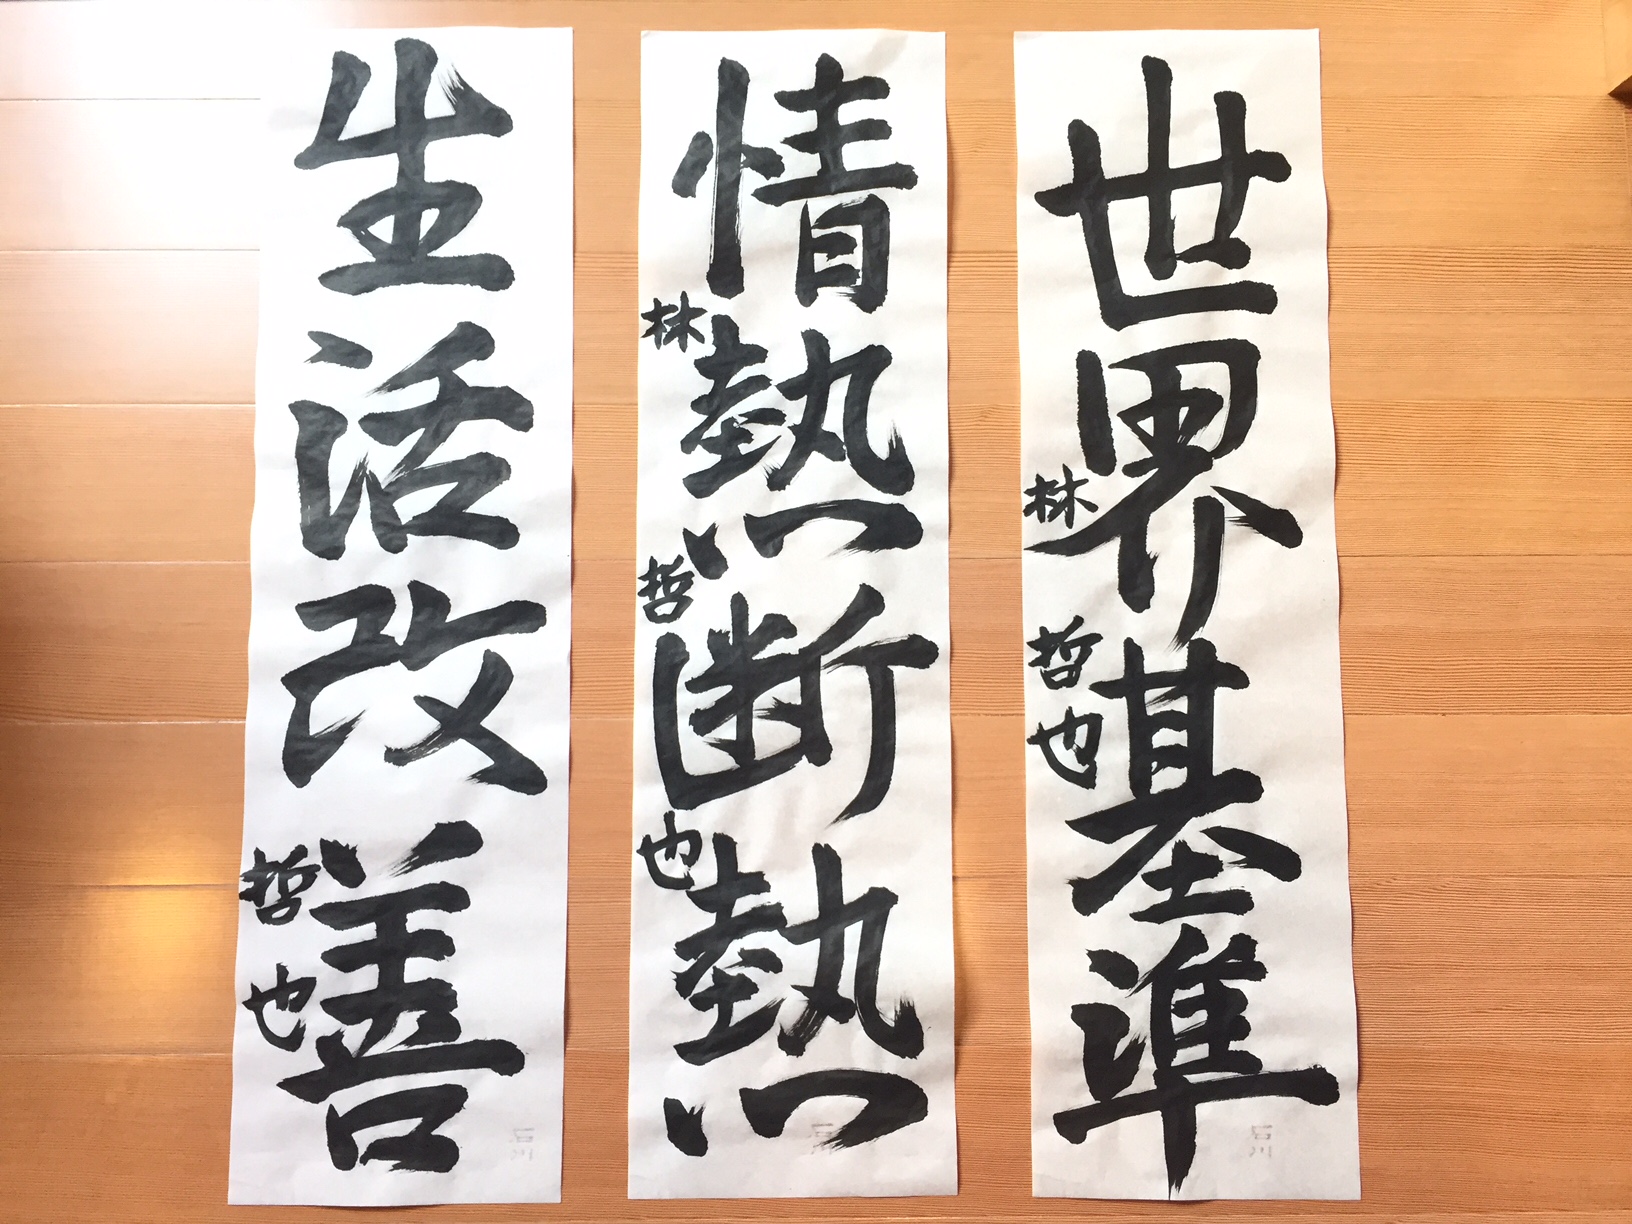 世界基準
林哲也
情熱断熱
林哲也
生活改善
哲也
石川
石川
石川